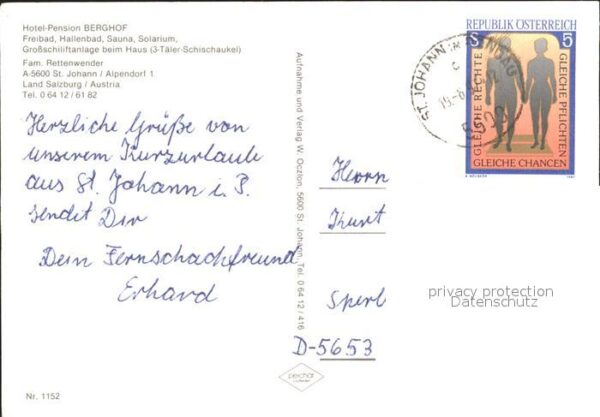 Hotel-Pension BERGHOF
Freibad, Hallenbad, Sauna, Solarium,
Großschiliftanlage beim Haus (3-Täler-Schischaukel)
Fam. Rettenwender
A-5600 St. Johann / Alpendorf 1
Land Salzburg / Austria
Tel. 0 64 12 / 61 82
Herzliche Grüße von
unserem Kurzurlaube
aus St. Johann i. P.
sendet Dir
Dein Fernschachfreund
Erhard
Nr. 1152
Aufnahme und Verlag W. Oczlon, 5600 St. Johann, Tel. 0 64 12 / 416
REPUBLIK ÖSTERREICH
S 5
GLEICHE RECHTE
GLEICHE PFLICHTEN
GLEICHE CHANCEN
ST. JOHANN IM
5600
Herrn
Kurt
Sperl
D-5653
privacy protection
Datenschutz